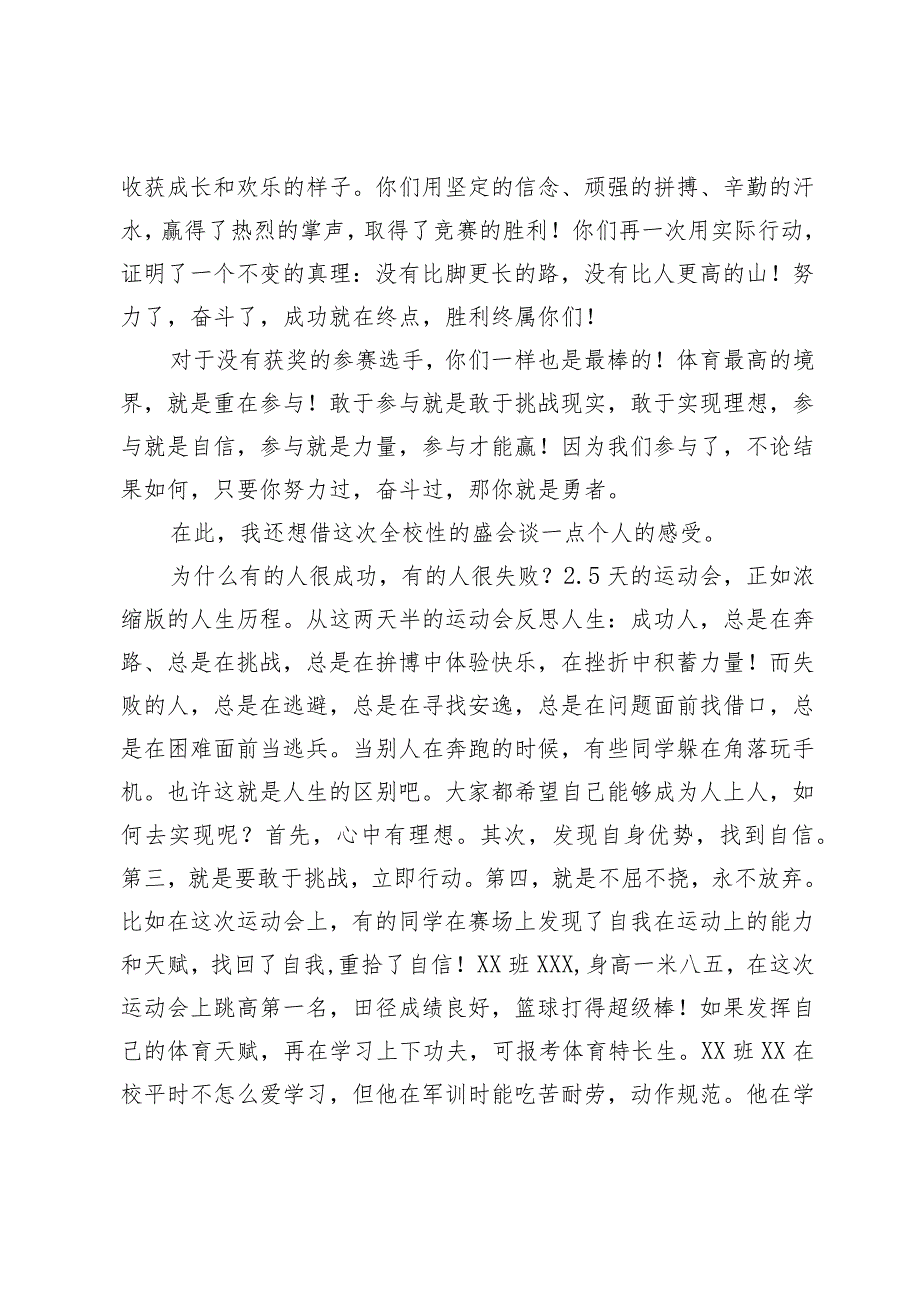 收获成长和欢乐的样子。你们用坚定的信念、顽强的拼搏、辛勤的汗
水，赢得了热烈的掌声，取得了竞赛的胜利！你们再一次用实际行动，
证明了一个不变的真理：没有比脚更长的路，没有比人更高的山！努
力了，奋斗了，成功就在终点，胜利终属你们！
对于没有获奖的参赛选手，你们一样也是最棒的！体育最高的境
界，就是重在参与！敢于参与就是敢于挑战现实，敢于实现理想，参
与就是自信，参与就是力量，参与才能赢！因为我们参与了，不论结
果如何，只要你努力过，奋斗过，那你就是勇者。
在此，我还想借这次全校性的盛会谈一点个人的感受。
为什么有的人很成功，有的人很失败？2.5 天的运动会，正如浓
缩版的人生历程。从这两天半的运动会反思人生：成功人，总是在奔
路、总是在挑战，总是在拚博中体验快乐，在挫折中积蓄力量！而失
败的人，总是在逃避，总是在寻找安逸，总是在问题面前找借口，总
是在困难面前当逃兵。当别人在奔跑的时候，有些同学躲在角落玩手
机。也许这就是人生的区别吧。大家都希望自己能够成为人上人，如
何去实现呢？首先，心中有理想。其次，发现自身优势，找到自信。
第三，就是要敢于挑战，立即行动。第四，就是不屈不挠，永不放弃。
比如在这次运动会上，有的同学在赛场上发现了自我在运动上的能力
和天赋，找回了自我,重拾了自信！XX 班 XXX,身高一米八五，在这次
运动会上跳高第一名，田径成绩良好，篮球打得超级棒！如果发挥自
己的体育天赋，再在学习上下功夫，可报考体育特长生。XX 班 XX 在
校平时不怎么爱学习，但他在军训时能吃苦耐劳，动作规范。他在学